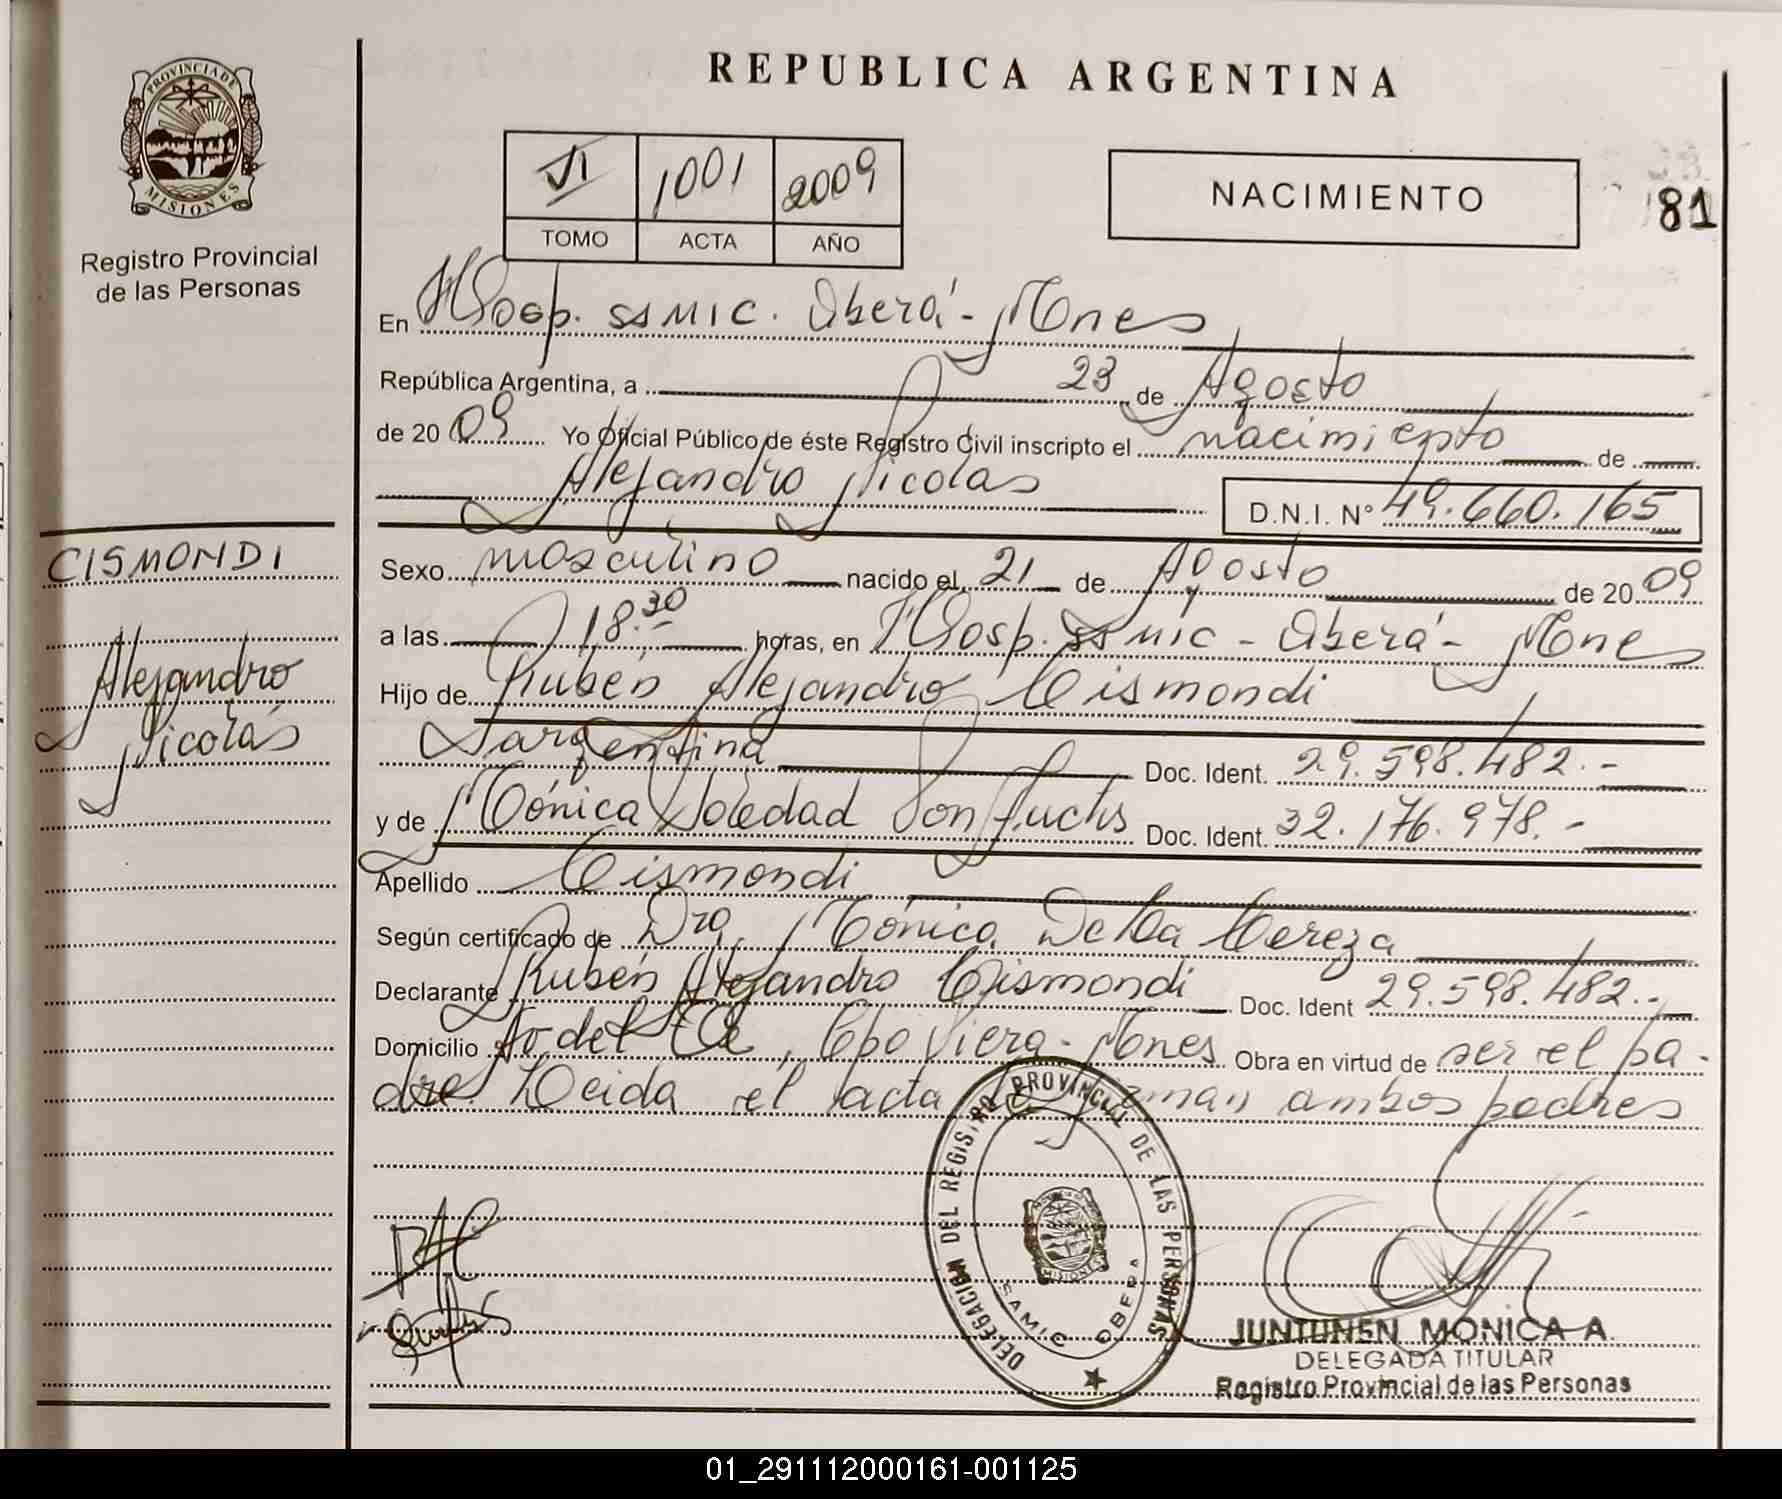 REPUBLICA ARGENTINA
PROVINCIA DE
MISIONES
Registro Provincial
de las Personas
VI 1001 2009
TOMO ACTA AÑO
NACIMIENTO
81
En Hosp. SAMIC. Oberá - Mnes
República Argentina, a 23 de Agosto
de 2009 Yo Oficial Público de éste Registro Civil inscripto el nacimiento de
Alejandro Nicolás
D.N.I. N° 49.660.165
CISMONDI
Alejandro
Nicolás
Sexo masculino nacido el 21 de Agosto de 2009
a las 18.30 horas, en Hosp. SAMIC - Oberá - Mnes
Hijo de Rubén Alejandro Cismondi
argentina Doc. Ident. 29.598.482.-
y de Mónica Soledad Von Fuchs Doc. Ident. 32.176.978.-
Apellido Cismondi
Según certificado de Dra. Mónica De La Cereza
Declarante Rubén Alejandro Cismondi Doc. Ident 29.598.482.-
Domicilio Av del Té, Cpo Viera - Mnes Obra en virtud de ser el pa-
dre. Leida el acta, la firman ambos padres
DELEGACION DEL REGISTRO PROVINCIAL DE LAS PERSONAS
SAMIC OBERA
JUNTUNEN MONICA A.
DELEGADA TITULAR
Registro Provincial de las Personas
01_291112000161-001125